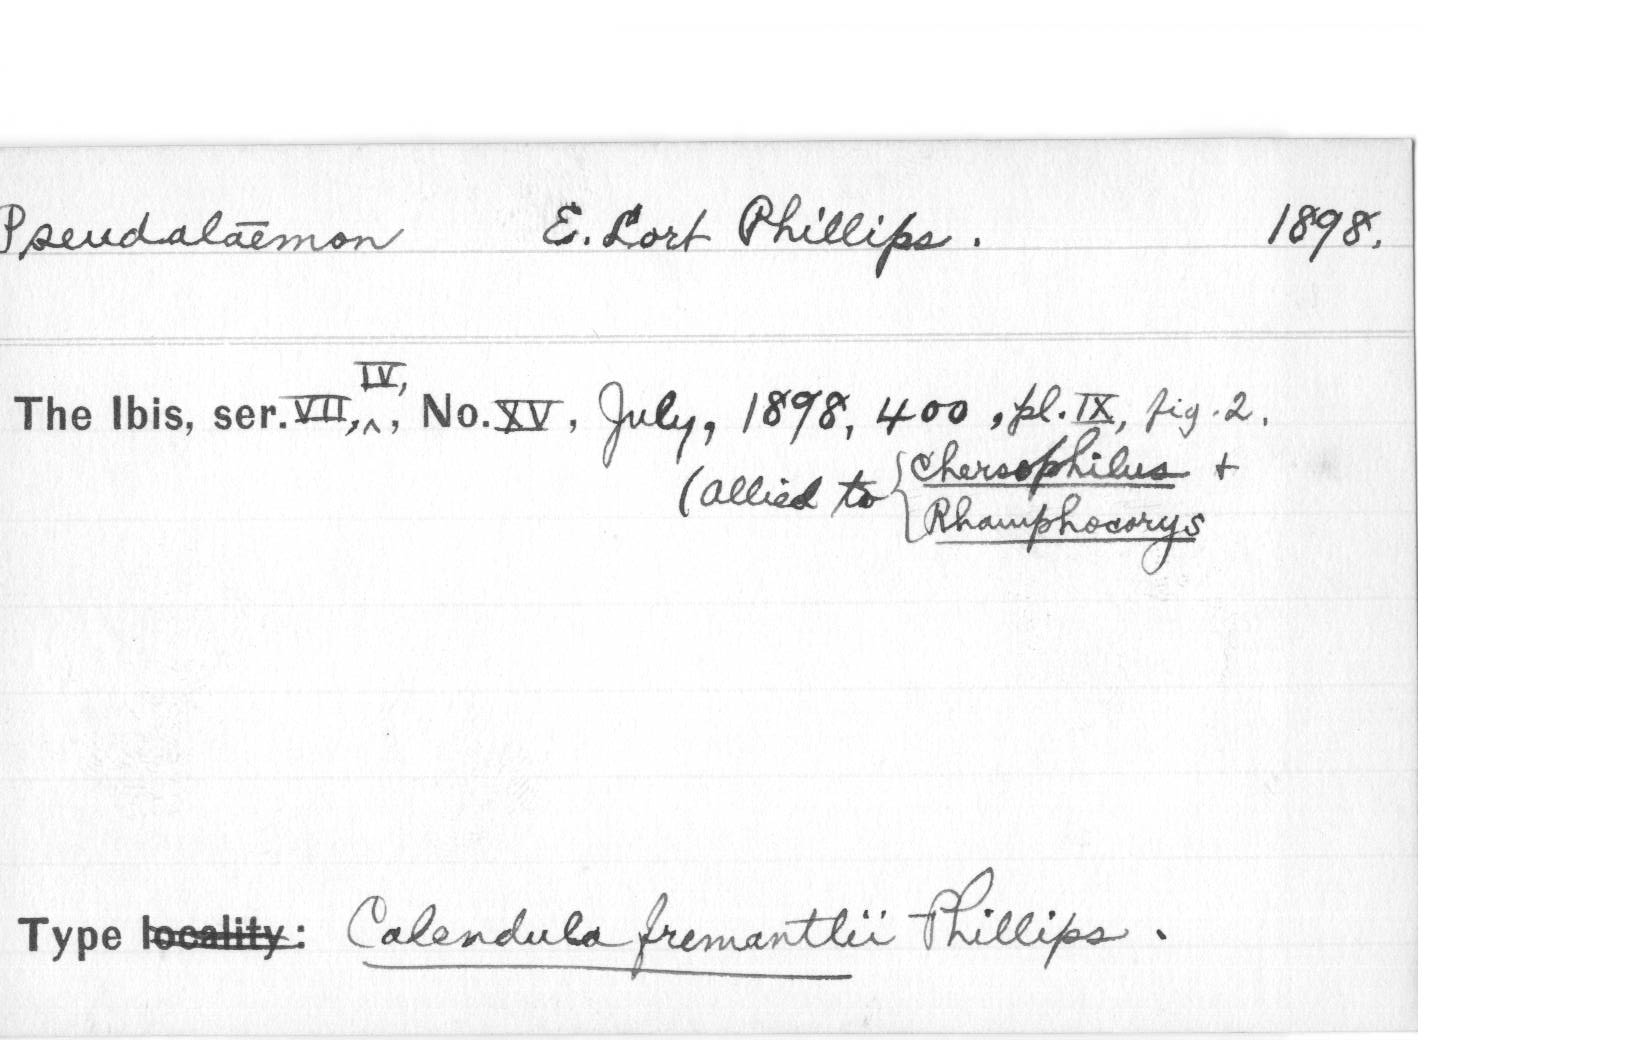 Pseudalāemon E. Lort Phillips. 1898.
The Ibis, ser. VII, IV, , No. XV, July, 1898, 400, pl. IX, fig. 2.
(allied to { Chersophilus +
Rhamphocorys
Type locality: Calendula fremantlii Phillips.